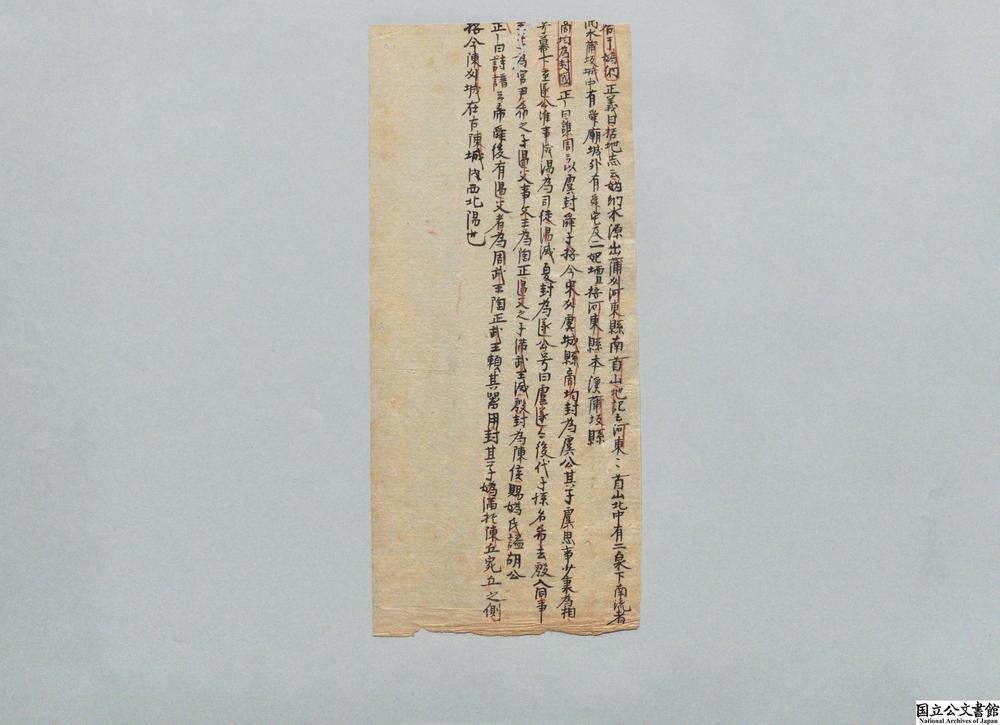 居于媯汭 正義曰括地志云媯汭水源出蒲州河東縣南首山地記云河東〻首山北中有二泉下南流者
汭水蒲坂城中有舜廟城外有舜宅及二妃壇按河東縣本漢蒲坂縣
商均為封國 正〻曰譙周云以虞封舜子按今宋州虞城縣商均封為虞公其子虞思事少康為相
号幕下至遂公淮事成湯為司徒湯滅夏封為遂公号曰虞遂〻後代子孫名希去殷入周事
王為官尹希之子遏父事文王為陶正遏父之子满武王滅殷封為陳侯賜媯氏謚胡公
正〻曰詩譜云帝舜後有遏父者為周武王陶正武王賴其器用封其子媯满於陳丘宛丘之側
按今陳州城在古陳城内西北隅也
国立公文書館
National Archives of Japan